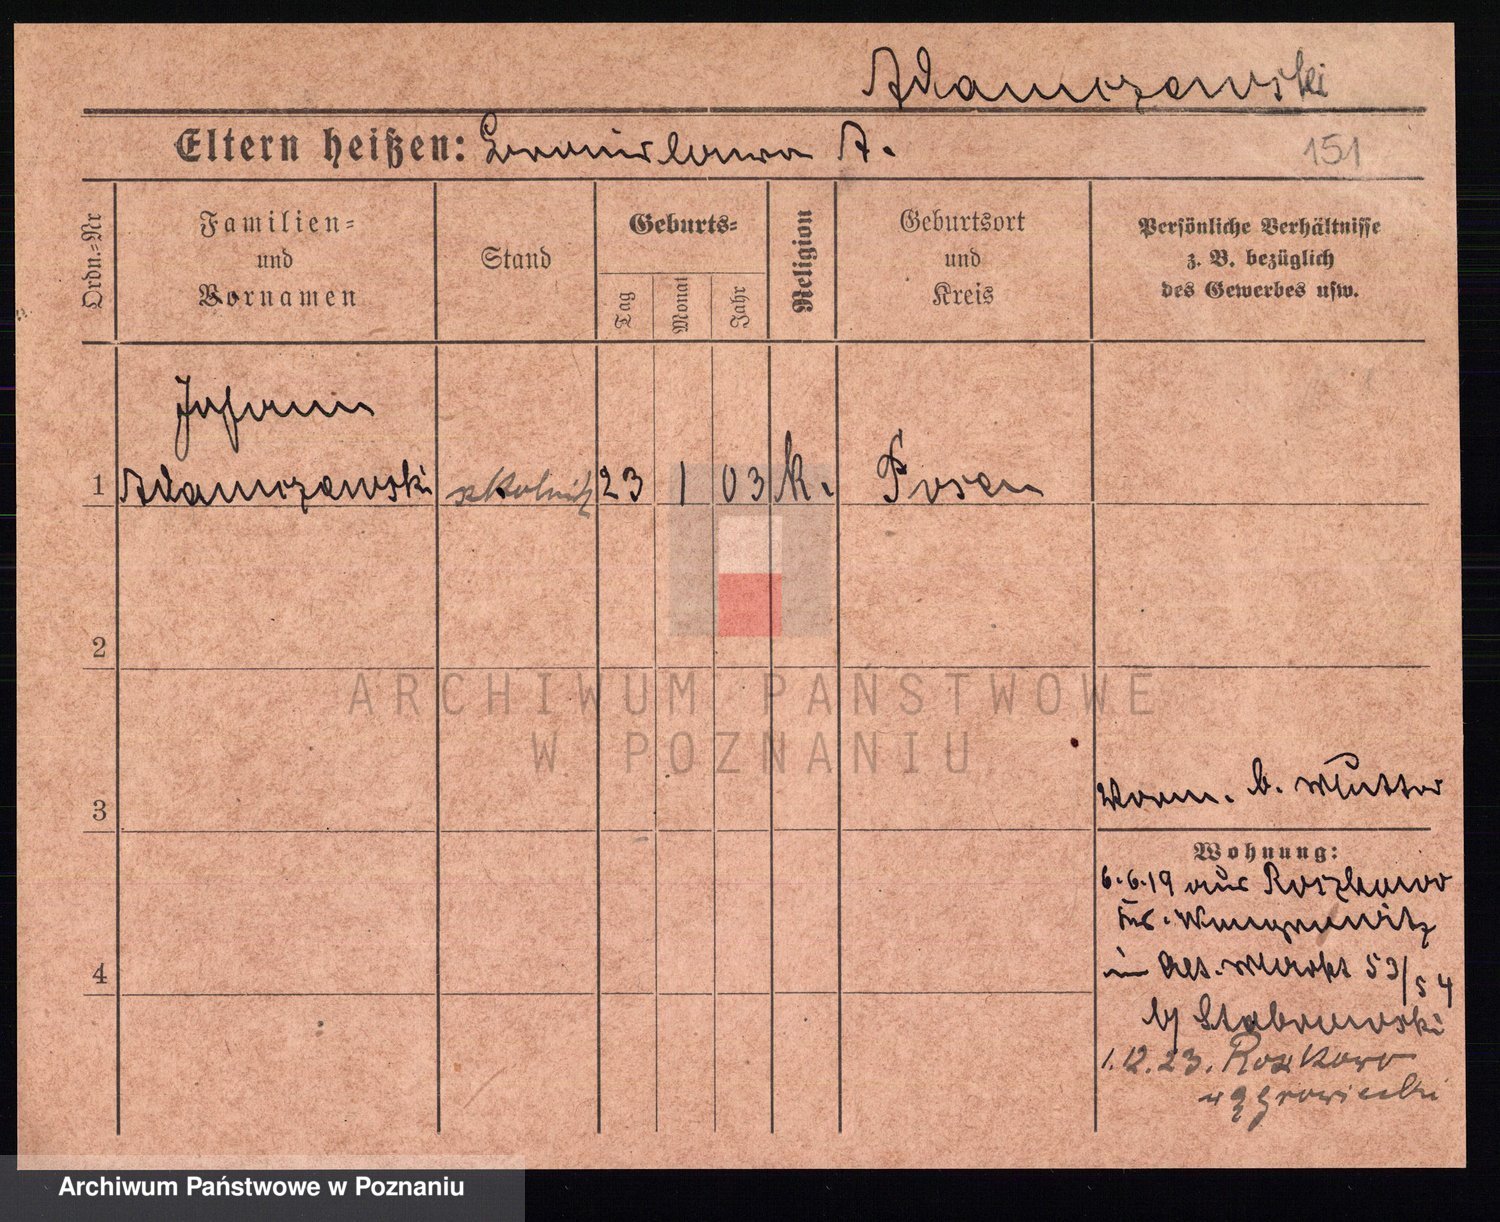 Adamczewski
Eltern heißen: Bronislawa A.
151
Ordn.-Nr
Familien-
und
Vornamen
Stand
Geburts-
Tag
Monat
Jahr
Religion
Geburtsort
und
Kreis
Persönliche Verhältnisse
z. B. bezüglich
des Gewerbes usw.
Johann
1 Adamczewski 23 1 03 k. Posen
2
ARCHIWUM PAŃSTWOWE
W POZNANIU
3
Vorm. b. Mutter
Wohnung:
6.6.19 aus Roszkowo
Krs. Wongrowitz
in Alt. Markt 53/54
b/
1.12.23. Roszkowo
wągrowiecki
4
Archiwum Państwowe w Poznaniu